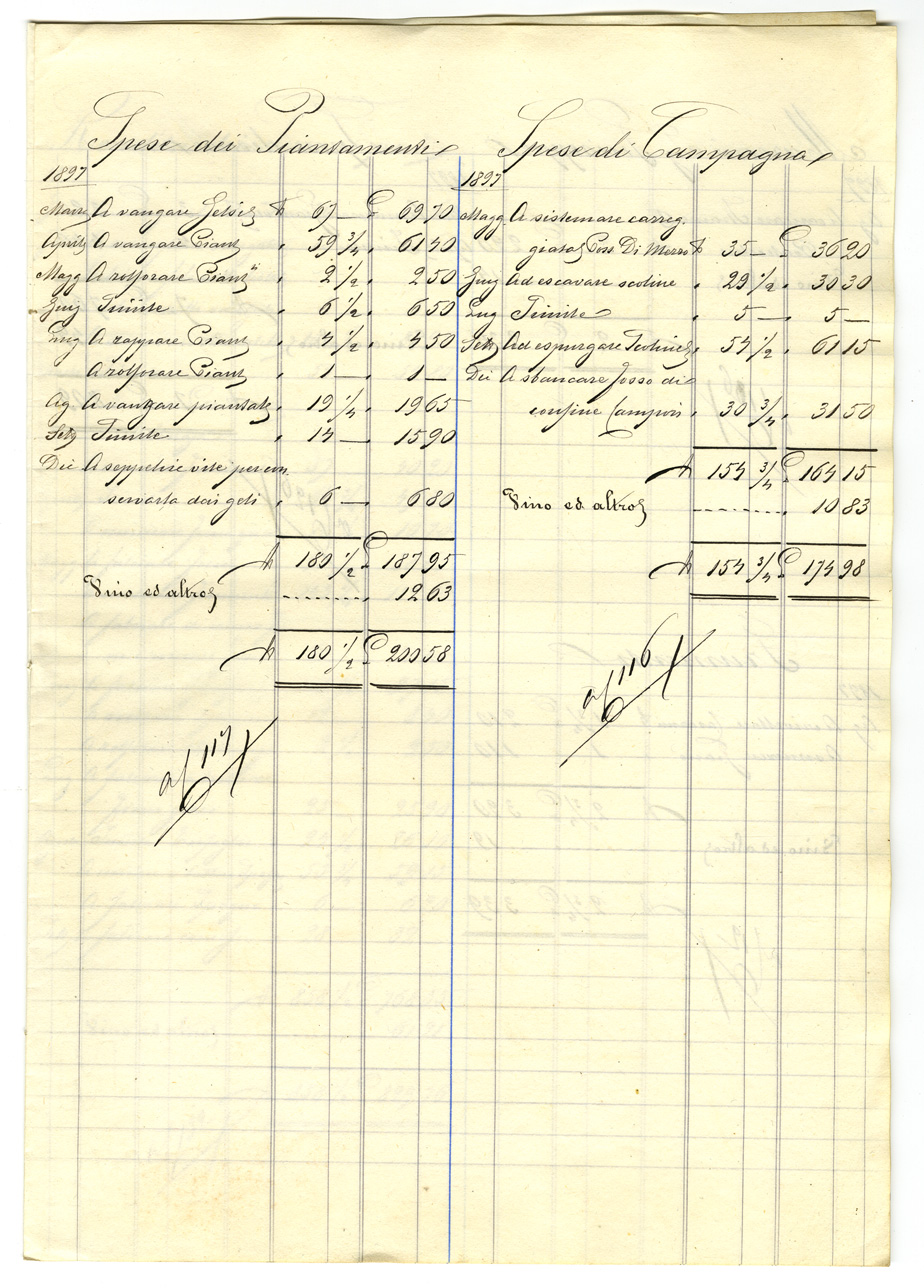 Spese dei Piantamenti
1897
Marz A vangare Gelsi N 67 — £ 69 70
Aprile A vangare Piant " 59 3/4 " 61 40
Magg A zolforare Piant.ti " 2 1/2 " 2 50
Giug Simile " 6 1/2 " 6 50
Lug A zappare Piant " 4 1/2 " 4 50
A zolforare Piant " 1 — " 1 —
Ag A vangare piantate " 19 1/4 " 19 65
Sett Simile " 14 — " 15 90
Dic A seppelire vite per con
servarla dai geli " 6 — " 6 80
N 180 1/2 £ 187 95
Vino ed altro 12 63
N 180 1/2 £ 200 58
a/ 117
Spese di Campagna
1897
Magg A sistemare carreg
giata Poss Di Mezzo N 35 — £ 36 20
Giug Ad escavare scoline " 29 1/2 " 30 30
Lug Simile " 5 — " 5 —
Sett Ad espurgare Scoline " 54 1/2 " 61 15
Dic A sbancare fosso di
confine " 30 3/4 " 31 50
N 154 3/4 £ 164 15
Vino ed altro 10 83
N 154 3/4 £ 174 98
a/ 116